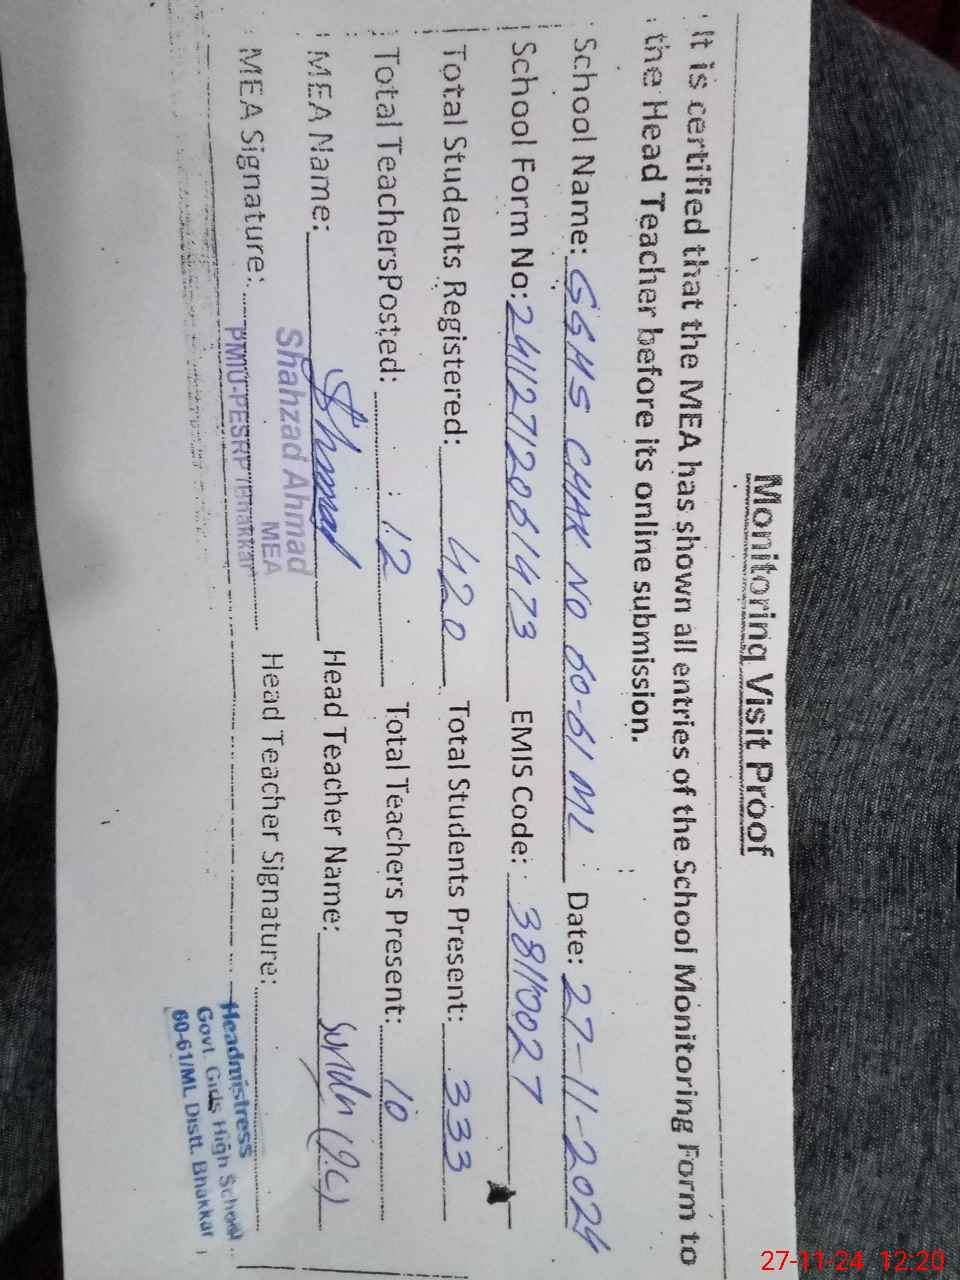 Monitoring Visit Proof
It is certified that the MEA has shown all entries of the School Monitoring Form to
the Head Teacher before its online submission.
School Name: GGHS CHAK NO 60-61 ML Date: 27-11-2024
School Form No: 24112712061473 EMIS Code: 38110027
Total Students Registered: 420 Total Students Present: 333
Total Teachers Posted: 12 Total Teachers Present: 10
MEA Name: Head Teacher Name: (I.C)
MEA Signature: Head Teacher Signature:
Shahzad Ahmad
MEA
PMIU-PESRP Bhakkar
Headmistress
Govt. Girls High School
60-61/ML Distt. Bhakkar
27-11-24 12:20